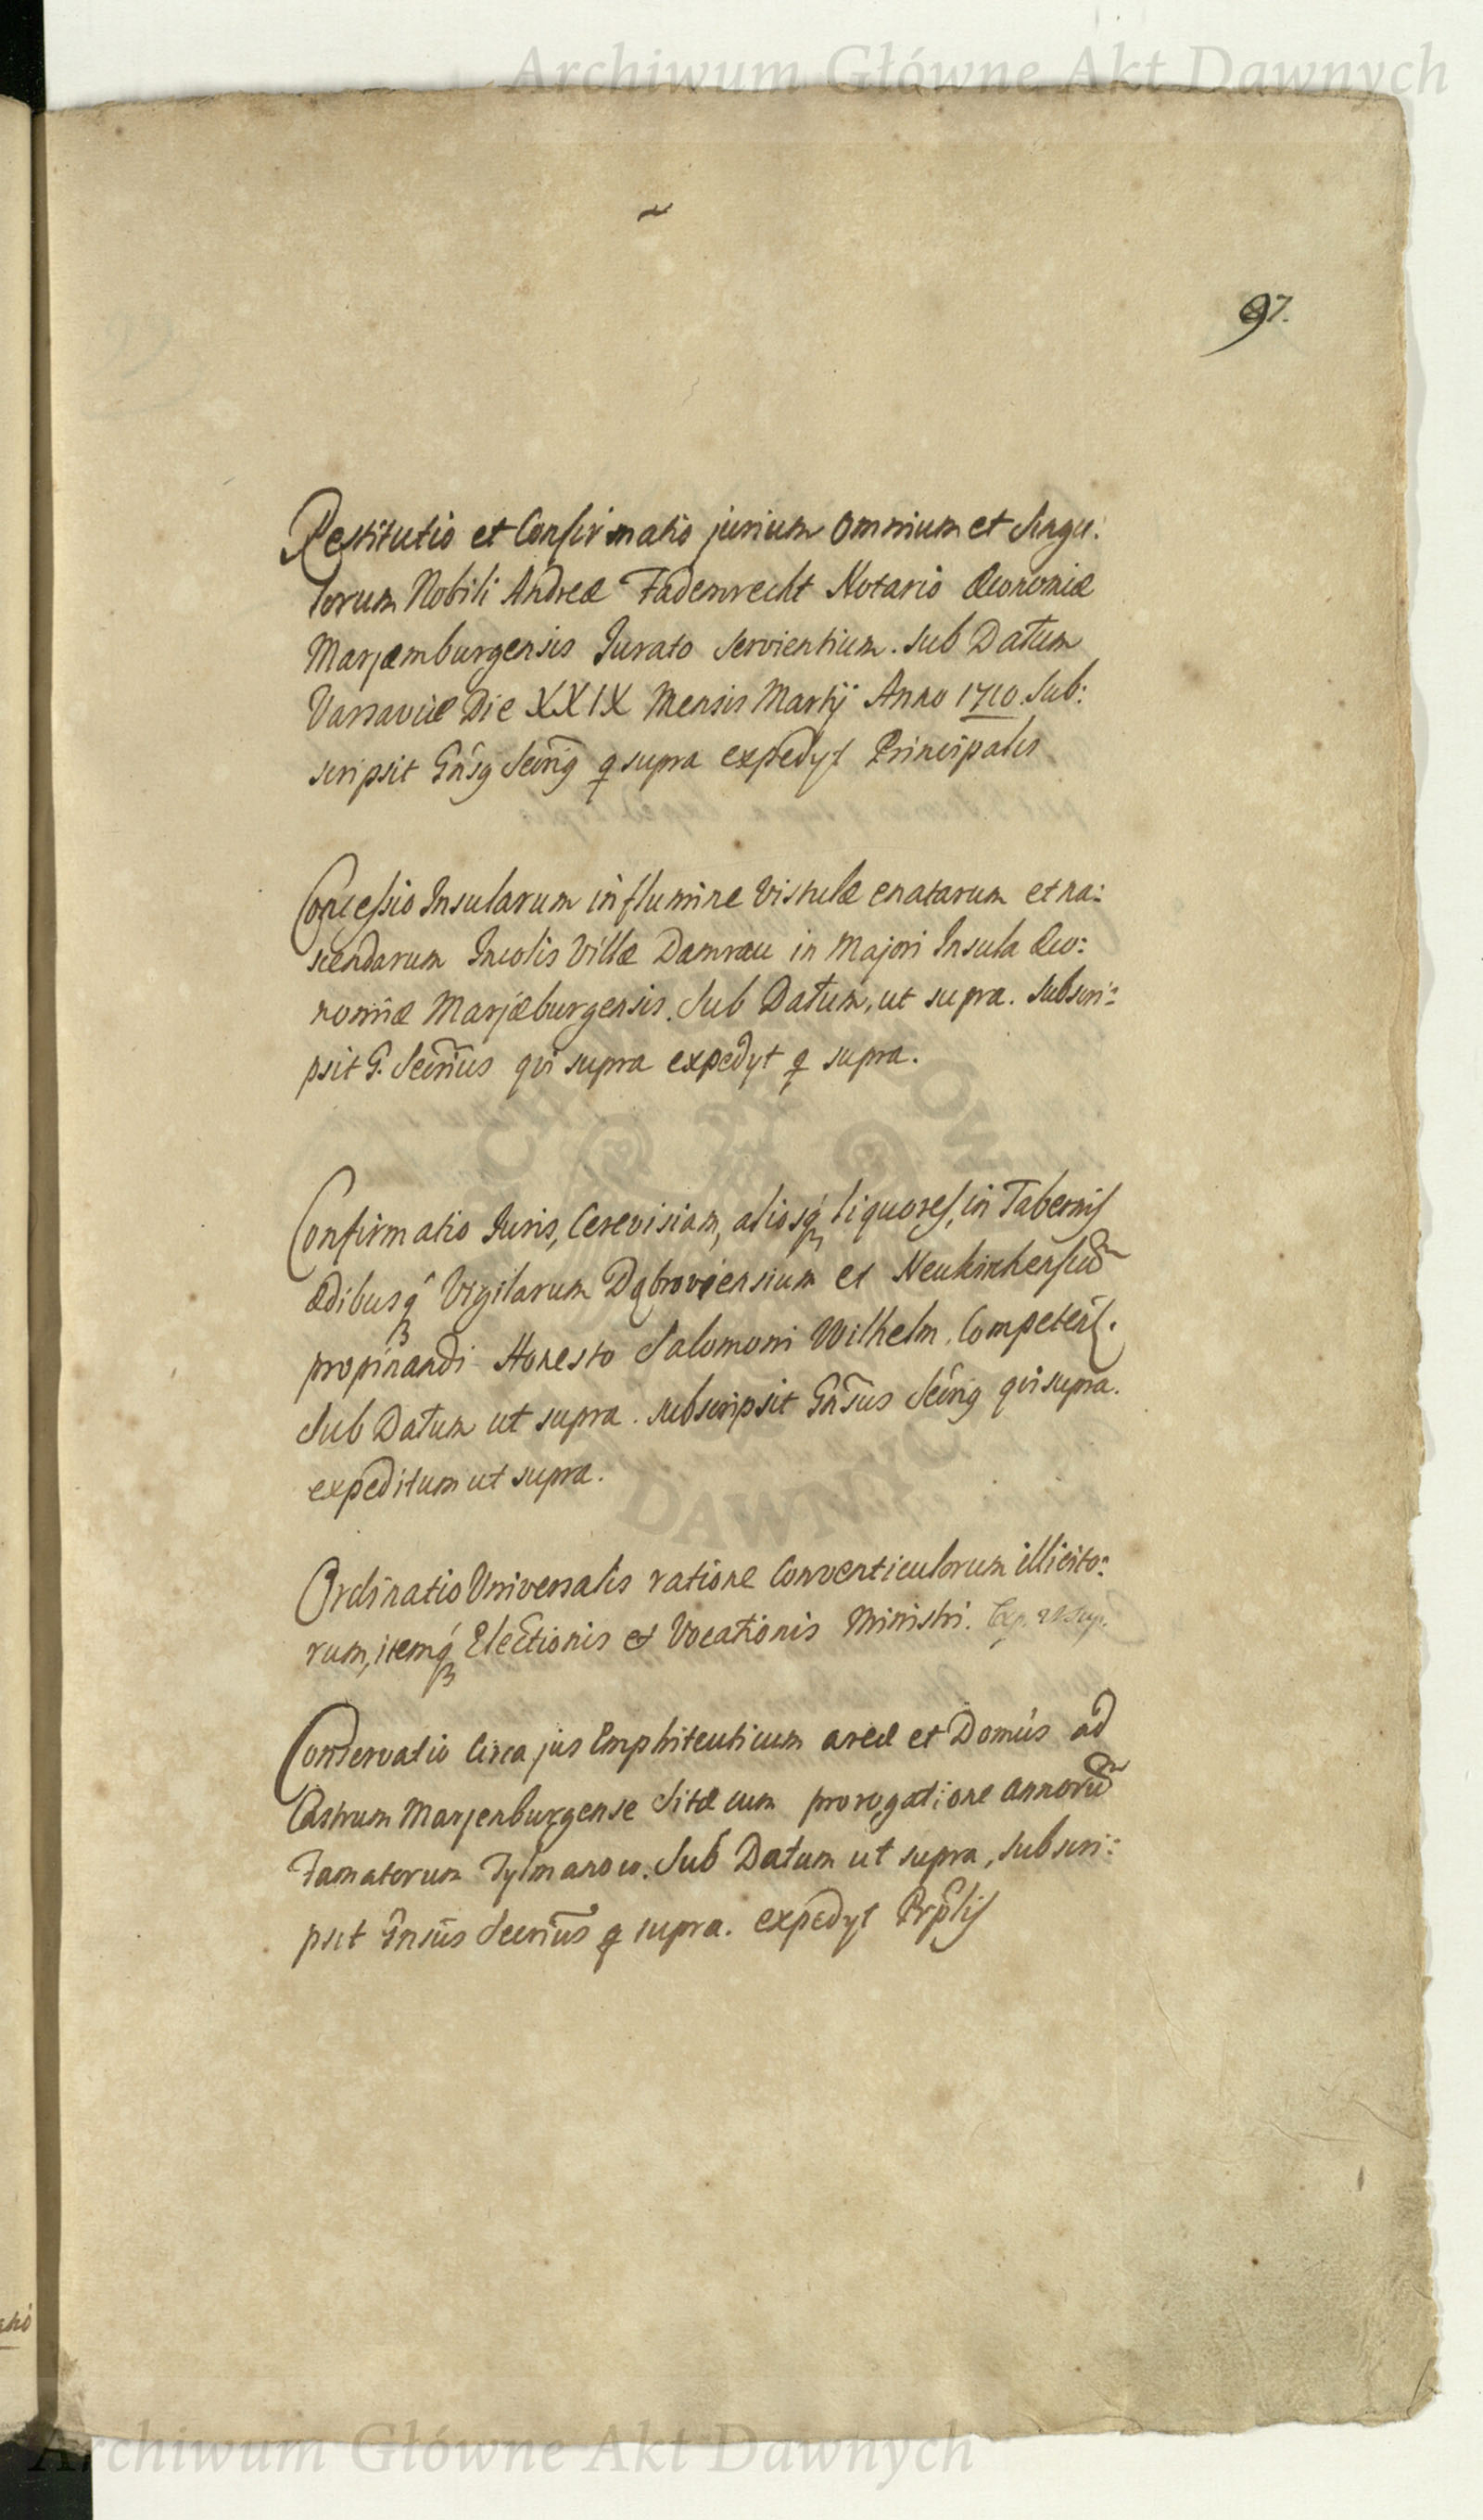 Archiwum Główne Akt Dawnych
97.
Restitutio et Confirmatio jurium omnium et singu:
lorum Nobili Andreæ Fadenrecht Notario Œconomiæ
Marjæmburgensis Jurato servientium. Sub Datum
Varsaviæ Die XXIX Mensis Martij Anno 1710. Sub:
scripsit Gnsq Secrīq q supra expedyt Principalis
Concessio Insularum in flumine Vistulæ enatarum et na:
scendarum Incolis Villæ Damrau in Majori Insula Œco:
nomiæ Marjæburgensis. Sub Datum, ut supra. Subscri:
psit G. Secrīus qui supra expedyt q supra.
Confirmatio Juris, Cerevisiam, aliosq liquores, in Tabernis
Ædibusq Vigilarum Dąbroviensium et Neukirchensiū
propinandi Honesto Salomoni Wilhelm. Competens.
Sub Datum ut supra. subscripsit Gnsus Secrīq qui supra.
expeditum ut supra.
Ordinatio Universalis ratione Conventiculorum illicito:
rum, itemq Electionis et Vocationis Ministri. Exp. ut sup.
Conservatio Circa jus Emphiteuticum areæ et Domûs ad
Castrum Marjenburgense Sitæ cum prorogatione annorū
Famatorum Tylmanow. Sub Datum ut supra, subscri:
psit Gnsūs Secrīus q supra. expedyt Prplis
Archiwum Główne Akt Dawnych